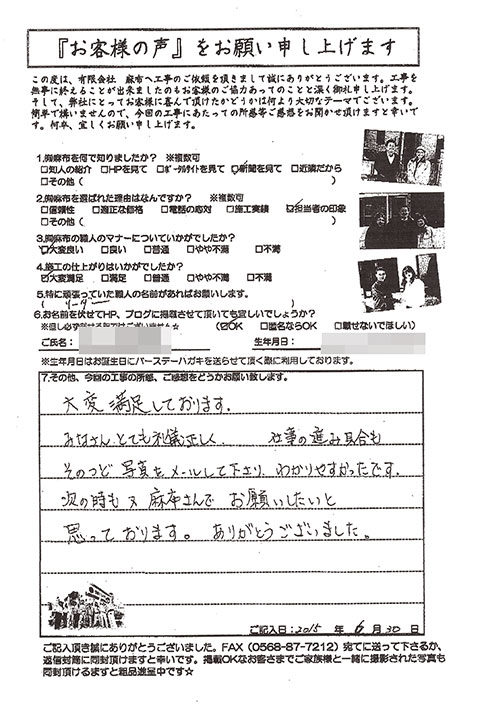 『お客様の声』をお願い申し上げます
この度は、有限会社 麻布へ工事のご依頼を頂きまして誠にありがとうございます。工事を
無事に終えることが出来ましたのもお客様のご協力あってのことと深く御礼申し上げます。
そして、弊社にとってお客様に喜んで頂けたかどうかは何より大切なテーマでございます。
簡単で構いませんので、今回の工事にあたっての所感等ご感想をお聞かせ頂けますと幸いで
す。何卒、宜しくお願い申し上げます。
1.㈲麻布を何で知りましたか? ※複数可
□知人の紹介 □HPを見て □ポータルサイトを見て ☑新聞を見て □近隣だから
□その他( )
2.㈲麻布を選ばれた理由はなんですか? ※複数可
□信頼性 □適正な価格 □電話の応対 □施工実績 ☑担当者の印象
□その他( )
3.㈲麻布の職人のマナーについていかがでしたか?
☑大変良い □良い □普通 □やや不満 □不満
4.施工の仕上がりはいかがでしたか?
☑大変満足 □満足 □普通 □やや不満 □不満
5.特に頑張っていた職人の名前があればお願いします。
( リーダー )
6.お名前を伏せてHP、ブログに掲載させて頂いても宜しいでしょうか?
(☑OK □匿名ならOK □載せないでほしい)
ご氏名: 生年月日:
※生年月日はお誕生日にバースデーハガキを送らせて頂く際に利用しております。
7.その他、今回の工事の所感、ご感想をどうかお願い致します。
大変満足しております.
みなさん とても礼儀正しく、 仕事の進み具合も
そのつど 写真を メールして下さり わかりやすかったです.
次の時も 又 麻布さんで お願いしたいと
思って おります。 ありがとうございました。
ご記入日:2015 年 6 月 30 日
ご記入頂き誠にありがとうございました。FAX(0568-87-7212)宛てに送って下さるか、
返信封筒に同封頂けますと幸いです。掲載OKなお客さまでご家族様と一緒に撮影された写真も
同封頂けるますと粗品進呈中です☆